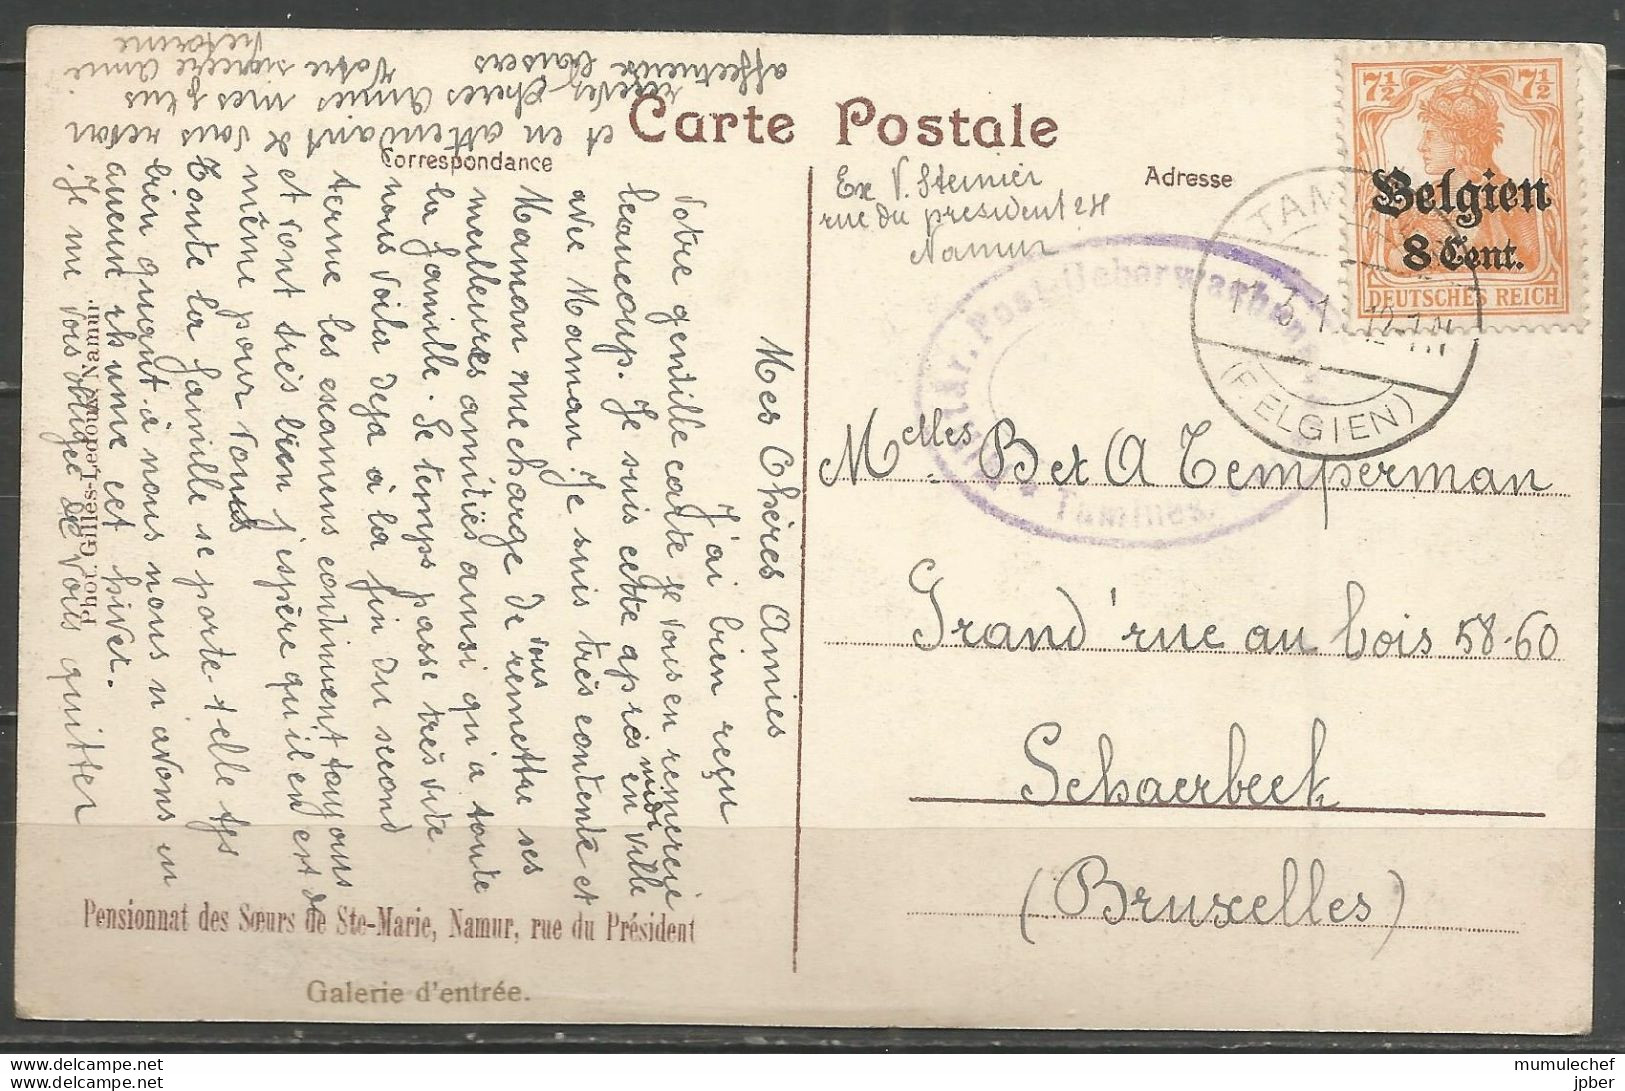 Carte Postale
Correspondance
Adresse
Ex V. Steinier
rue du president 24
Namur
7½ 7½
Belgien
8 Cent.
DEUTSCHES REICH
TAM
12-1 N
(BELGIEN)
Post-Ueberwachung
Tamines.
Melles B et A Temperman
Grand'rue au bois 58-60
Schaerbeek
(Bruxelles)
Mes Chères Amies
J'ai bien reçu
votre gentille carte je vous en remercie
beaucoup. Je suis cette après midi en ville
avec Maman. Je suis très contente et
Maman me charge de vous remettre ses
meilleures amitiés ainsi qu'a toute
la famille. Le temps passe très vite
nous voila deja à la fin du second
terme les examens continuent toujours
et vont très bien j'espère qu'il en est de
même pour vous
Toute la famille se porte-t-elle tjs
bien quant à nous nous n'avons eu
aucun rhume cet hiver.
Je me vois obligée de vous quitter
et en attendant de vous revoir
recevez chères amies mes plus
affectueux baisers Votre sincère amie
Phot. Gilles-Ledoux, Namur.
Pensionnat des Sœurs de Ste-Marie, Namur, rue du Président
Galerie d'entrée.
delcampe.net
mumulechef
delcampe.net
jpber